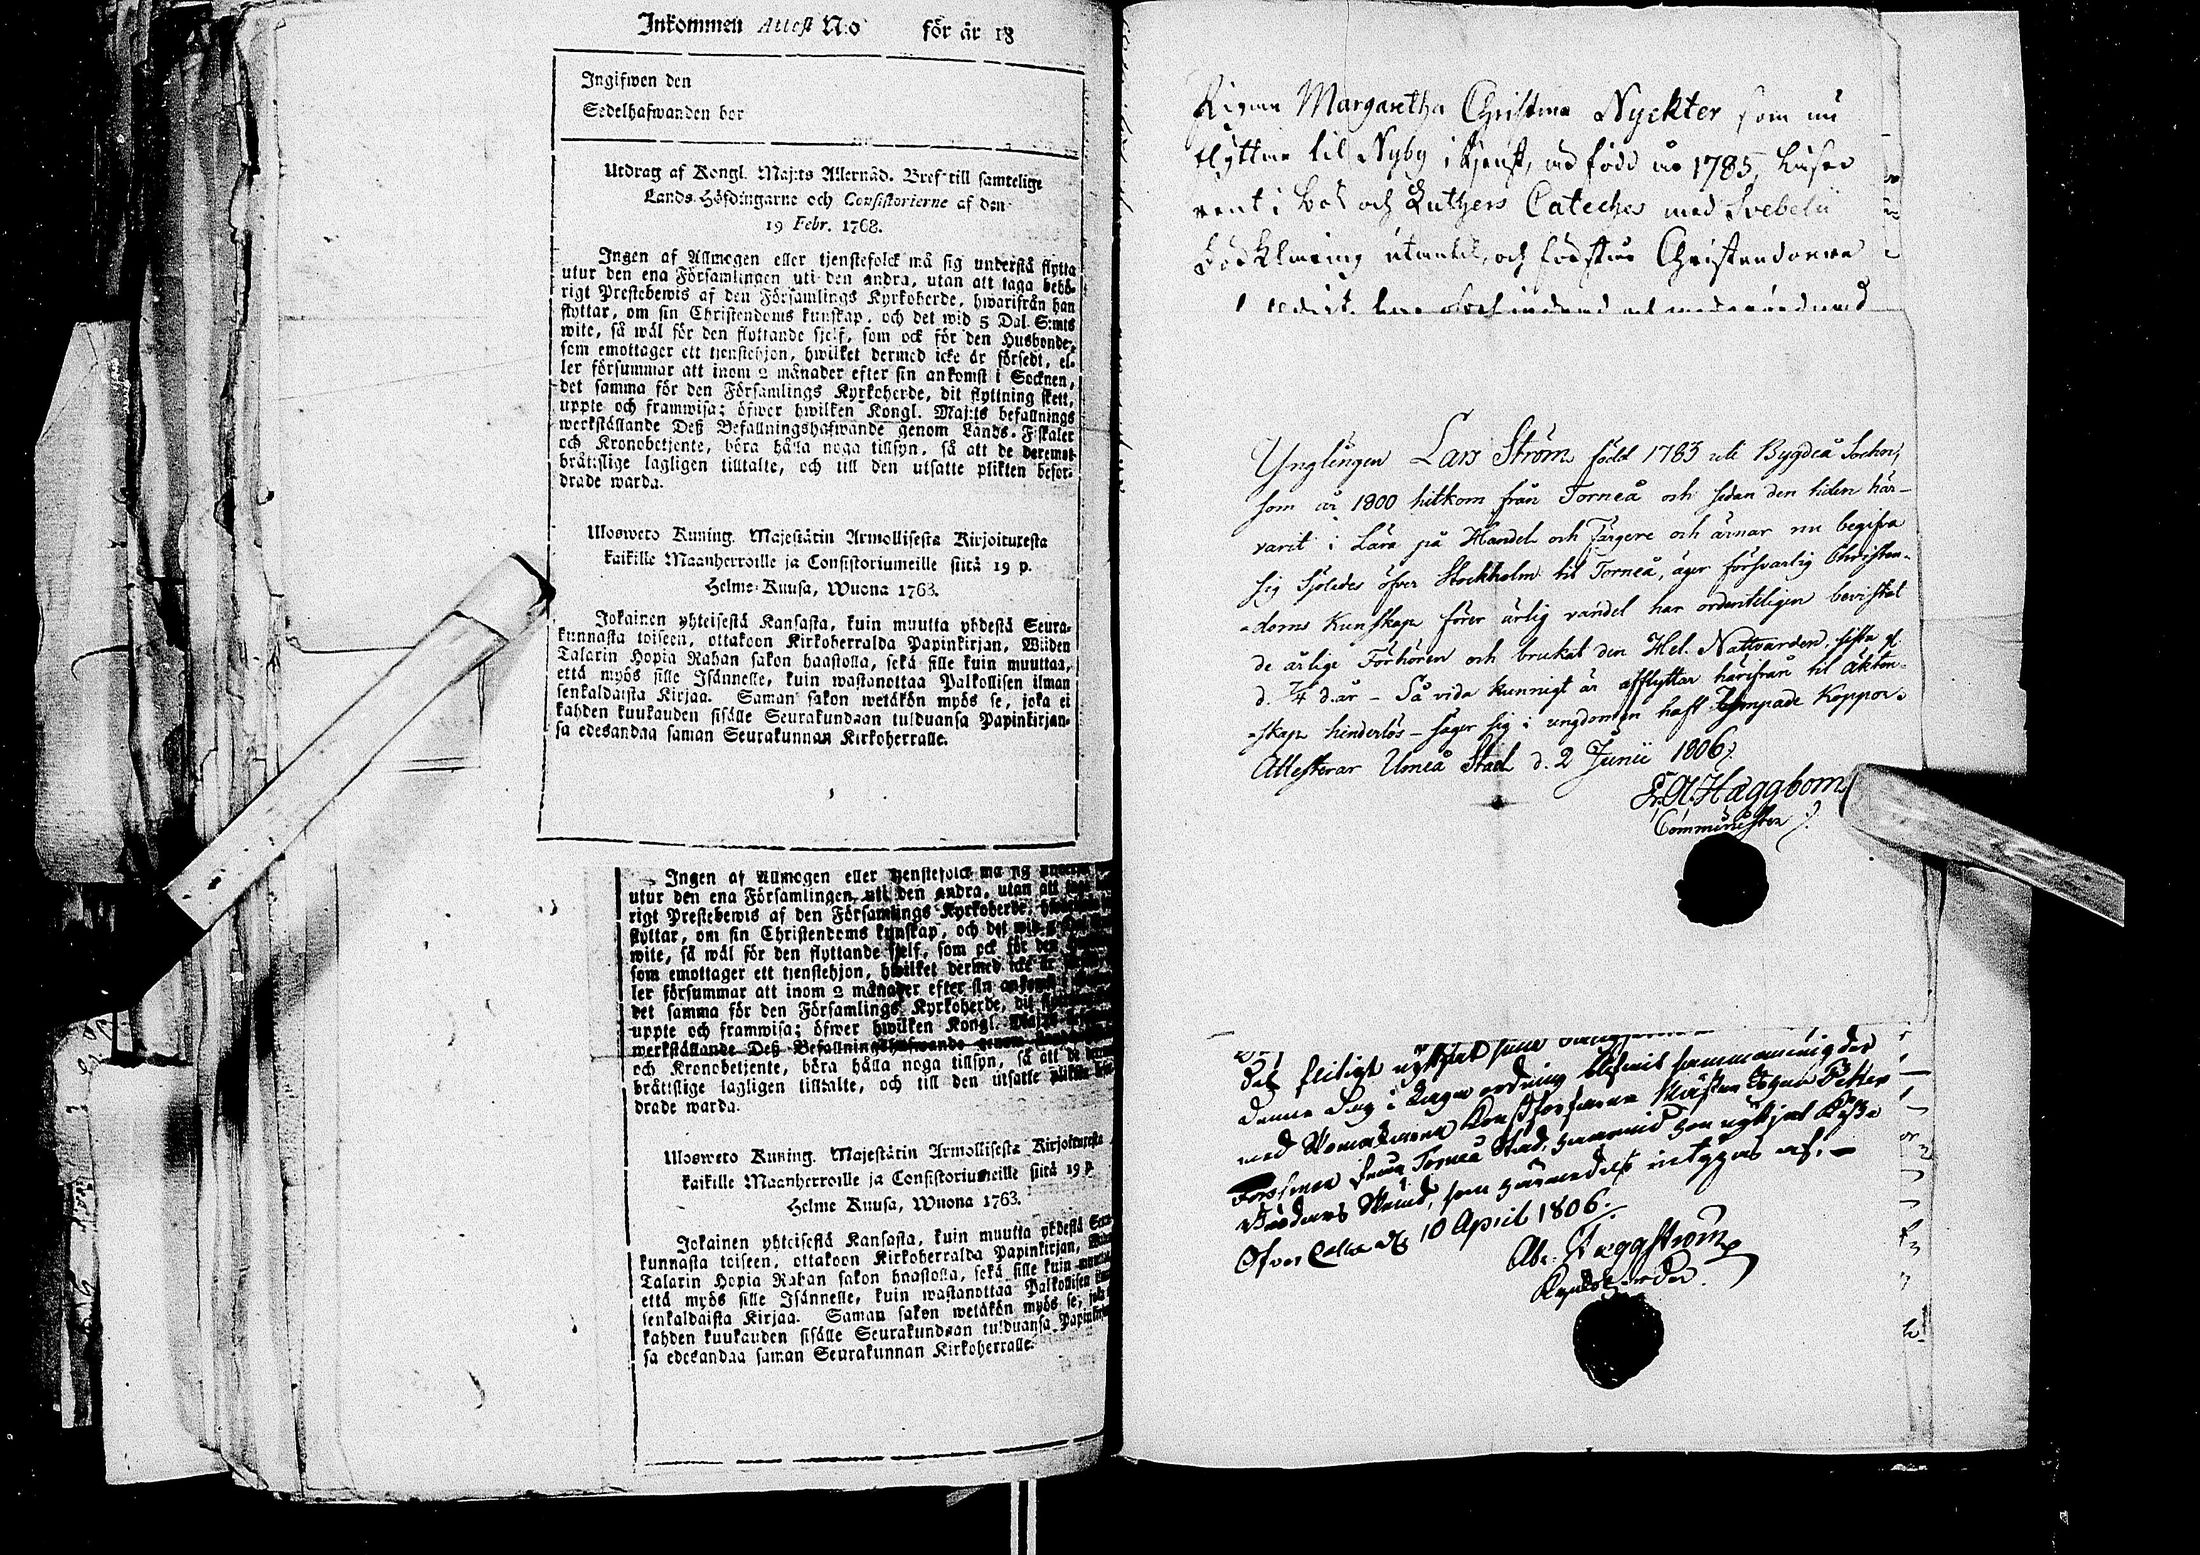 Inkommen Attest N:o för år 18
Ingifwen den
Sedelhafwanden bor
Utdrag af Kongl. Maj:ts Allernåd. Bref till samtelige
Lands-Höfdingarne och Consistorierne af den
19 Febr. 1768.
Ingen af Allmogen eller tjenstefolck må sig understå flytta
utur den ena Församlingen uti den andra, utan att taga behö-
rigt Prestebewis af den Församlings Kyrkoherde, hwarifrån han
flyttar, om sin Christendoms kunskap, och det wid 5 Dal. S:mts
wite, så wäl för den flyttande sjelf, som ock för den Husbonde,
som emottager ett tjenstehjon, hwilket dermed icke är försedt, el-
ler försummar att inom 2 månader efter sin ankomst i Socknen,
det samma för den Församlings Kyrkoherde, dit flyttning skett,
uppte och framwisa; öfwer hwilken Kongl. Maj:ts befallnings
werkställande Deß Befallningshafwande genom Lands-Fiskaler
och Kronobetjente, böra hålla noga tillsyn, så att de deremot
bråttslige lagligen tilltalte, och till den utsatte plikten befor-
drade warda.
Ulosweto Kuning. Majestätin Armollisesta Kirjoituxesta
kaikille Maanherroille ja Consistoriumeille siitä 19 p.
Helme-Kuusa, Wuona 1763.
Jokainen yhteisestä Kansasta, kuin muutta yhdestä Seura-
kunnasta toiseen, ottakoon Kirkoherralda Papinkirjan, Wiiden
Talarin Hopia Rahan sakon haastolla, sekä sille kuin muuttaa,
että myös sille Isännelle, kuin wastanottaa Palkollisen ilman
senkaldaista Kirjaa. Saman sakon wetäkön myös se, joka ei
kahden kuukauden sisälle Seurakundaan tulduansa Papinkirjan-
sa edesandaa saman Seurakunnan Kirkoherralle.
Ingen af Allmogen eller tjenstefolck må sig
utur den ena Församlingen uti den andra, utan att
rigt Prestebewis af den Församlings Kyrkoherde,
flyttar, om sin Christendoms kunskap, och det wid
wite, så wäl för den flyttande sjelf, som ock för den
som emottager ett tjenstehjon, hwilket dermed icke är
ler försummar att inom 2 månader efter sin ankomst
det samma för den Församlings Kyrkoherde, dit
uppte och framwisa; öfwer hwilken Kongl. Maj:ts
werkställande Deß Befallningshafwande genom
och Kronobetjente, böra hålla noga tillsyn, så att de
bråttslige lagligen tilltalte, och till den utsatte plikten
drade warda.
Ulosweto Kuning. Majestätin Armollisesta Kirjoituxesta
kaikille Maanherroille ja Consistoriumeille siitä 19 p.
Helme Kuusa, Wuona 1763.
Jokainen yhteisestä Kansasta, kuin muutta yhdestä Seu
kunnasta toiseen, ottakoon Kirkoherralda Papinkirjan,
Talarin Hopia Rahan sakon haastolla, sekä sille kuin
että myös sille Isännelle, kuin wastanottaa Palkollisen
senkaldaista Kirjaa. Saman sakon wetäkön myös se,
kahden kuukauden sisälle Seurakundaan tulduansa
sa edesandaa saman Seurakunnan Kirkoherralle.
Pigan Margaretha Christina Nyckter som nu
flyttar til Nyby i tjenst, är född år 1785, läser
rent i bok och Luthers Cateches med Svebelii
Förklaring utantil, och förstår Christendomen
Ynglingen Lars Ström född 1783 uti Bygdeå Sochn,
som år 1800 hitkom från Torneå och sedan den tiden här-
varit i Lära på Handel och Färgere och ärnar nu begifva
sig sjöledes öfver Stockholm til Torneå, äger försvarlig Christen-
-doms Kunskap förer ärlig vandel har ordenteligen bevistat
de årlige Förhören och brukat den Hel. Nattvarden sista g.
d. 7/4 d. år - Så vida kunnigt är afflyttar härifrån til äkten-
-skap hinderlös - säger sig i ungdomen haft Ympade Koppor.
Attesterar Umeå Stad d. 2 Junii 1806.
Häggbom
Comminister
denna dag i laga ordning blifvit
med
Forssman från Torneå Stad,
värdens som härmedelst intygas af.
Öfver d. 10 April 1806.
Häggström
Kyrkoherde.